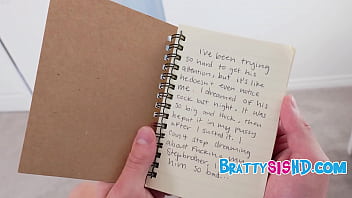 I've been trying
so hard to get his
attention, but it's like
he doesn't even notice
me. I dreamed of his
cock last night. It was
so big and thick. Then
he put it in my pussy
after I sucked it. I
can't stop dreaming
about fucking my
stepbrother.
him so bad.
BRATTYSISHD.COM